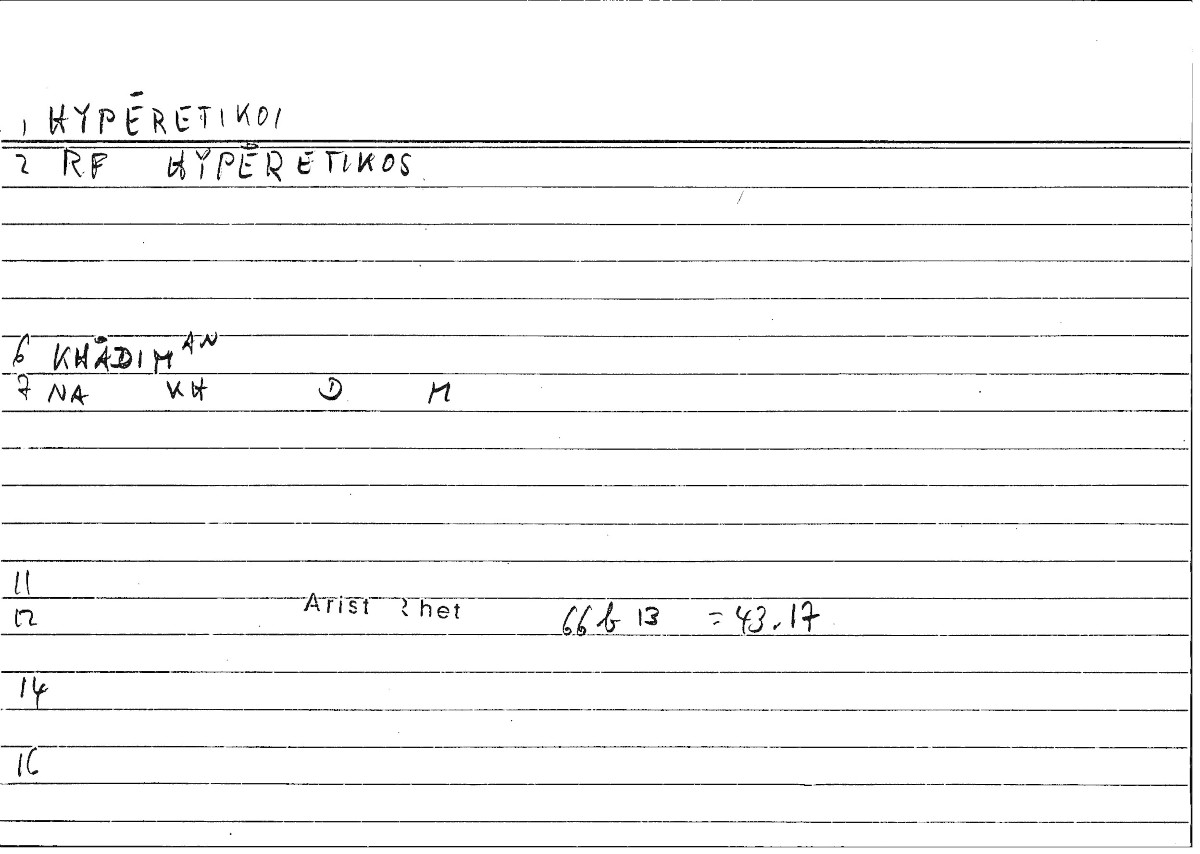 1 HYPĒRETIKOI
2 RF HYPĒRETIKOS
6 KHĀDIMAN
7 NA KH D M
11
12 Arist Rhet 66 b 13 = 43.17
14
16